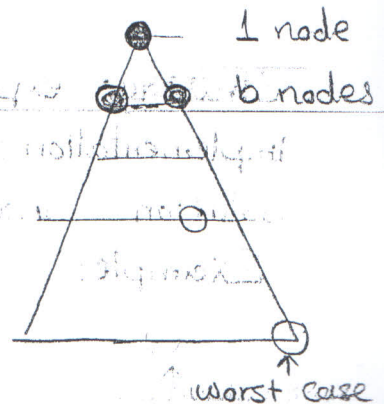 1 node
b nodes
worst case